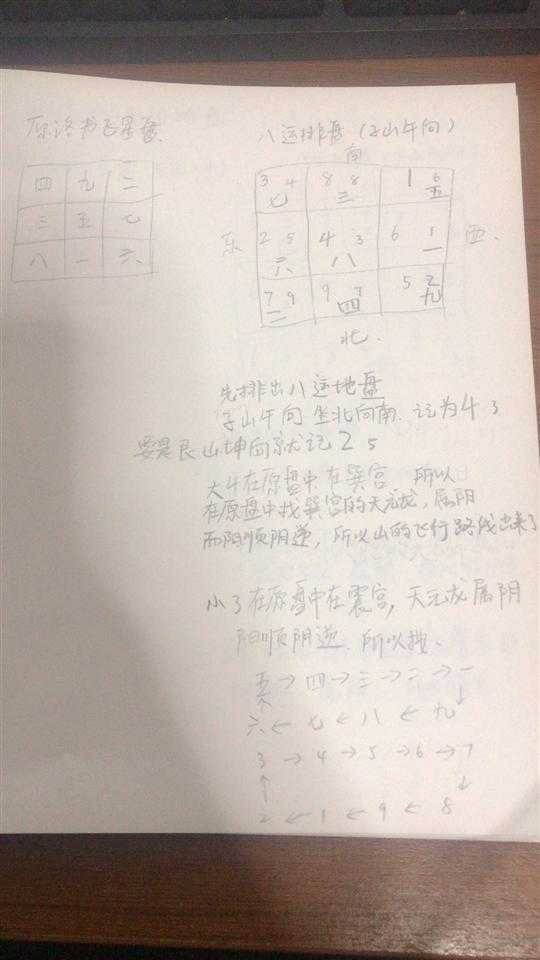 原洛书九星盘
四 九 二
三 五 七
八 一 六
八运排盘（子山午向）
南
3 4 8 8 1 6
七 三 五
东 2 5 4 3 6 1 西
六 八 一
7 9 9 7 5 2
二 四 九
北
先排出八运地盘
子山午向 坐北向南 记为4 3
要是艮山坤向就记2 5
大4在原盘中在巽宫 所以
在原盘中找巽宫的天元龙，属阴
而阳顺阴逆，所以山的飞行路线出来了
小3在原盘中在震宫，天元龙属阴
阳顺阴逆 所以
五→四→三→二→一
↑ ↓
六←七←八←九
3→4→5→6→7
↑ ↓
2←1←9←8